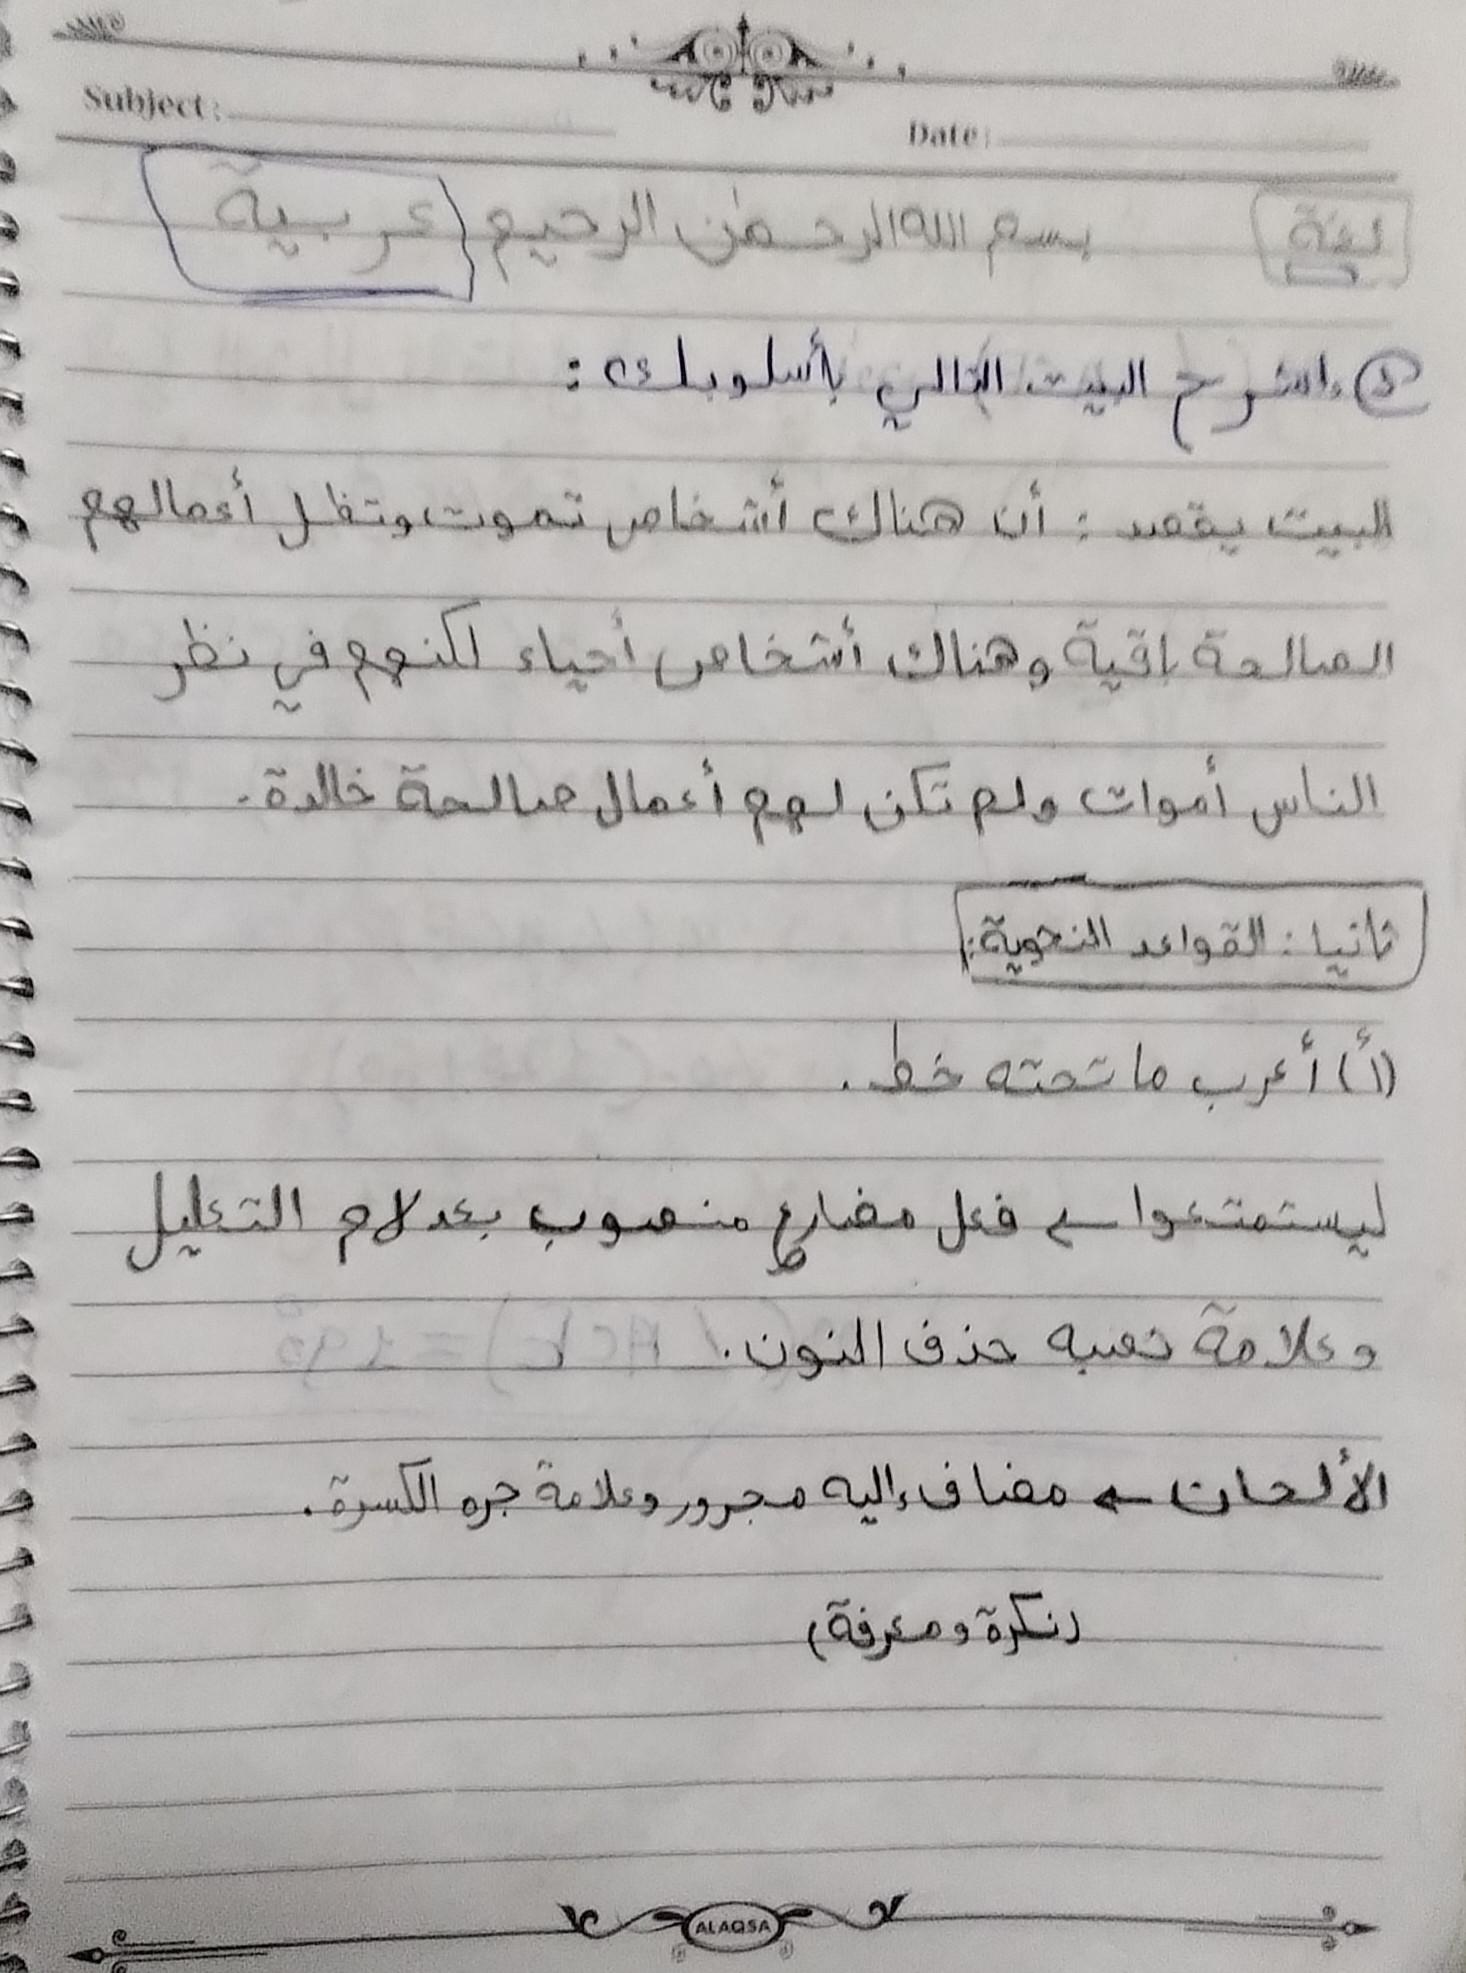 Subject:
Date:
لغة
بسم الله الرحمٰن الرحيم
عربية
اشرح البيت التالي بأسلوبك :
البيت يقصد : أن هناك أشخاص تموت وتظل أعمالهم
الصالحة باقية وهناك أشخاص أحياء لكنهم في نظر
الناس أموات ولم تكن لهم أعمال صالحة خالدة.
ثانيا : القواعد النحوية:
(أ) أعرب ما تحته خط.
ليستمتعوا ← فعل مضارع منصوب بعد لام التعليل
وعلامة نصبه حذف النون.
الألحان ← مضاف إليه مجرور وعلامة جره الكسرة.
(نكرة ومعرفة)
ALAQSA